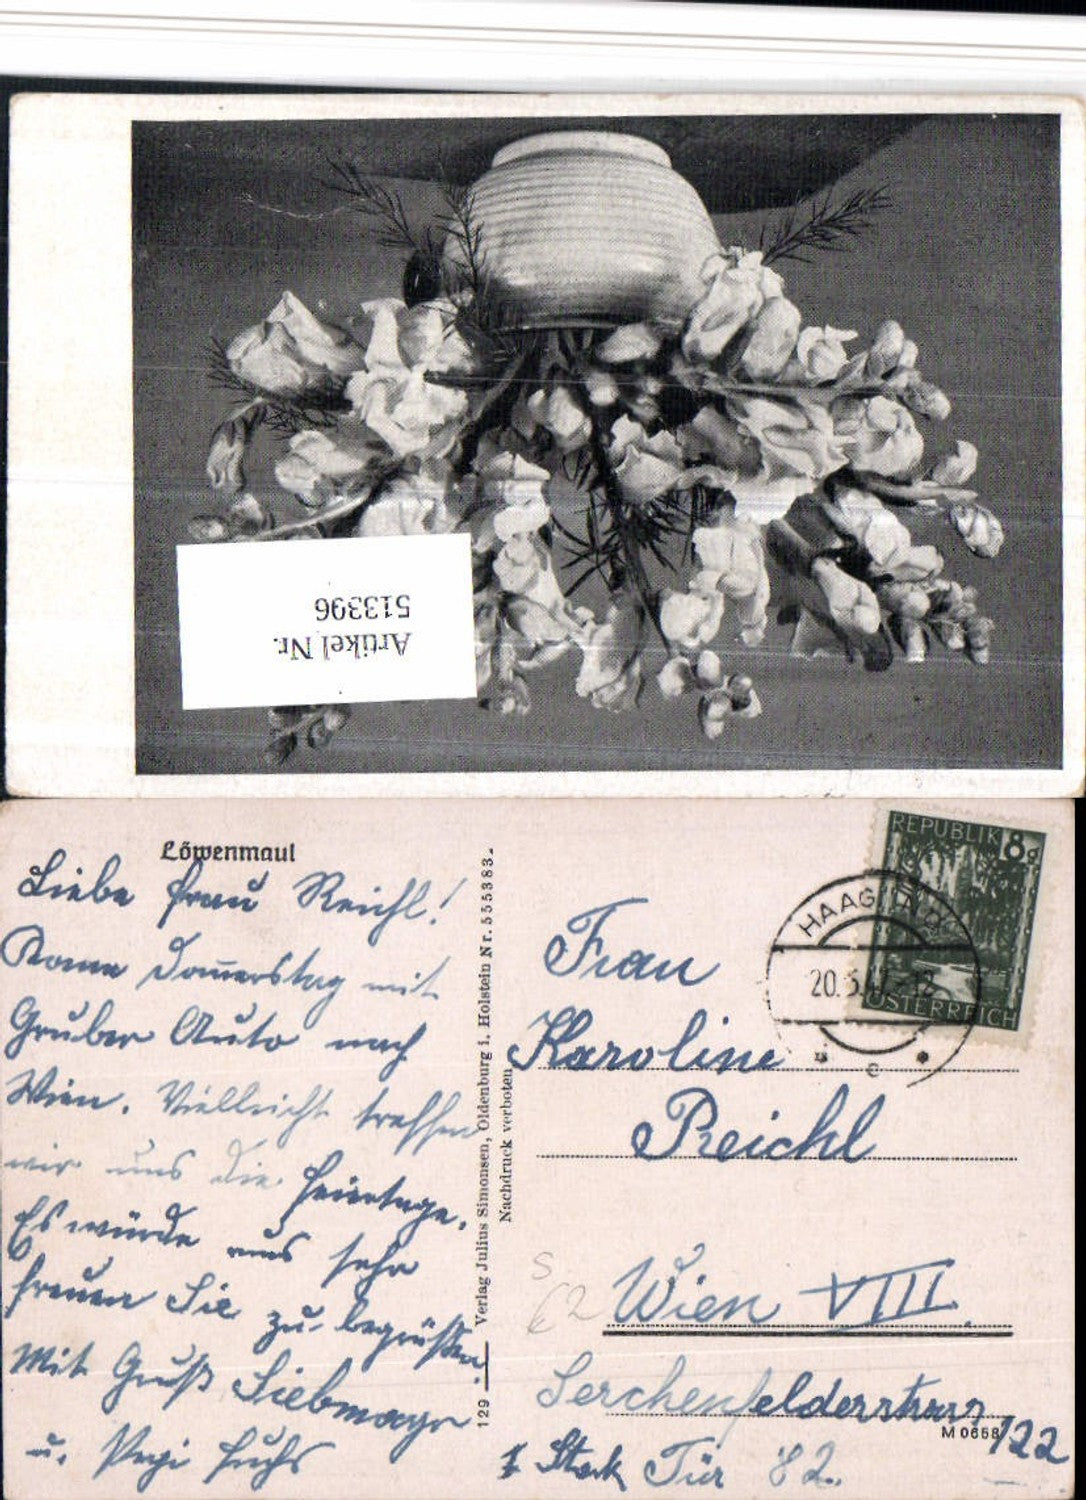 Artikel Nr.
513396
Löwenmaul
Liebe Frau Reichl!
Komme Donnerstag mit
Gruber Auto nach
Wien. Vielleicht treffen
wir uns die Feiertage.
Es würde uns sehr
freuen Sie zu begrüßen.
Mit Gruß Liebmayr
u. Pepi Fuchs
129 Verlag Julius Simonsen, Oldenburg i. Holstein Nr. 555383.
Nachdruck verboten
REPUBLIK 8
ÖSTERREICH
HAAG
20.
Frau
Karoline
Reichl
Wien VIII.
Lerchenfelderstrass
122
M 0658
Stock Tür 82.